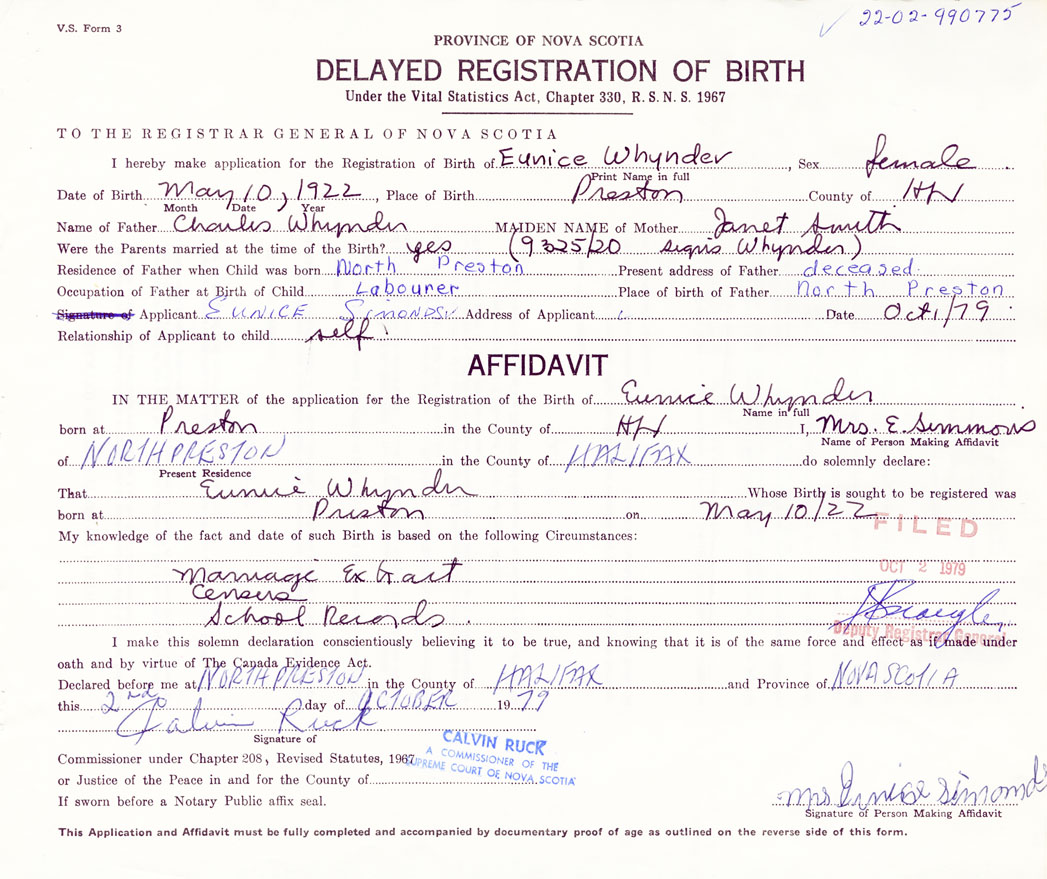 V.S. Form 3
22-02-990775
PROVINCE OF NOVA SCOTIA
DELAYED REGISTRATION OF BIRTH
Under the Vital Statistics Act, Chapter 330, R. S. N. S. 1967
TO THE REGISTRAR GENERAL OF NOVA SCOTIA
I hereby make application for the Registration of Birth of Eunice Whynder, Sex female
Print Name in full
Date of Birth May 10, 1922, Place of Birth Preston County of Hfx
Month Date Year
Name of Father Charles Whynder MAIDEN NAME of Mother Janet Smith
Were the Parents married at the time of the Birth? yes (9325/20 signs Whynder)
Residence of Father when Child was born North Preston Present address of Father deceased
Occupation of Father at Birth of Child Labourer Place of birth of Father North Preston
Signature of Applicant EUNICE SIMONDS Address of Applicant Date Oct 1/79
Relationship of Applicant to child self
AFFIDAVIT
IN THE MATTER of the application for the Registration of the Birth of Eunice Whynder
Name in full
born at Preston in the County of Hfx I, Mrs. E. Simmons
Name of Person Making Affidavit
of NORTH PRESTON in the County of HALIFAX do solemnly declare:
Present Residence
That Eunice Whynder Whose Birth is sought to be registered was
born at Preston on May 10/22
FILED
My knowledge of the fact and date of such Birth is based on the following Circumstances:
OCT 2 1979
Marriage Extract
Census
School Records.
Deputy Registrar General
I make this solemn declaration conscientiously believing it to be true, and knowing that it is of the same force and effect as if made under
oath and by virtue of The Canada Evidence Act.
Declared before me at NORTH PRESTON in the County of HALIFAX and Province of NOVA SCOTIA
this 2nd day of OCTOBER 1979
Calvin Ruck
Signature of
CALVIN RUCK
A COMMISSIONER OF THE
SUPREME COURT OF NOVA SCOTIA
Commissioner under Chapter 208, Revised Statutes, 1967
or Justice of the Peace in and for the County of
If sworn before a Notary Public affix seal.
Mrs Eunice Simonds
Signature of Person Making Affidavit
This Application and Affidavit must be fully completed and accompanied by documentary proof of age as outlined on the reverse side of this form.